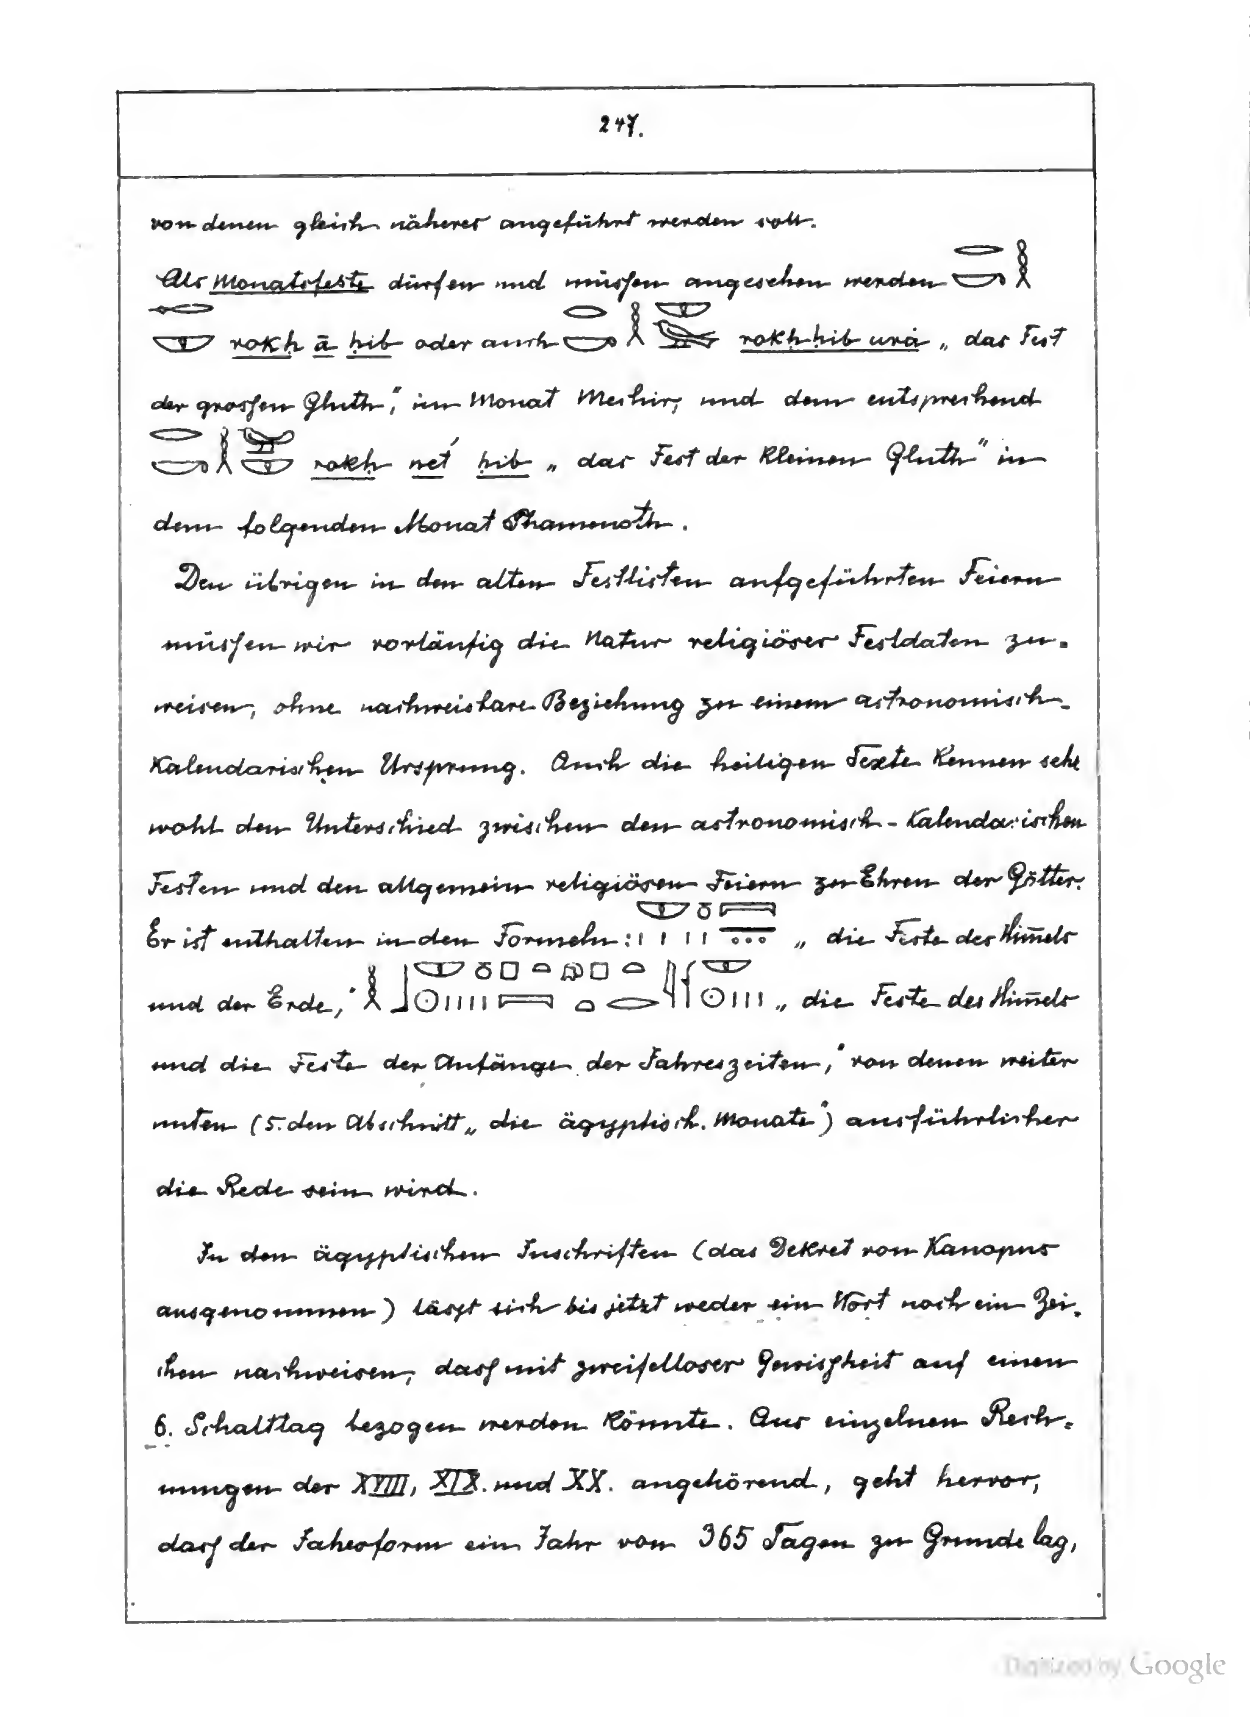 247.
von denen gleich näheres angeführt werden soll.
Als Monatsfeste dürfen und müssen angesehen werden
rokḥ ā ḥib oder auch rokḥ ḥib urȧ „das Fest
der grossen Gluth“, im Monat Mechir, und dem entsprechend
rokḥ net́ ḥib „das Fest der kleinen Gluth“ in
dem folgenden Monat Phamenoth.
Den übrigen in den alten Festlisten aufgeführten Feiern
müssen wir vorläufig die Natur religiöser Festdaten zu-
weisen, ohne nachweisbare Beziehung zu einem astronomisch-
kalendarischen Ursprung. Auch die heiligen Texte kennen sehr
wohl den Unterschied zwischen den astronomisch-kalendarischen
Festen und den allgemein religiösen Feiern zu Ehren der Götter.
Er ist enthalten in den Formeln: „die Feste des Him̅els
und der Erde,“ „die Feste des Him̅els
und die Feste der Anfänge der Jahreszeiten,“ von denen weiter
unten (s. den Abschnitt „die ägyptisch. Monate“) ausführlicher
die Rede sein wird.
In den ägyptischen Inschriften (das Dekret von Kanopus
ausgenommen) lässt sich bis jetzt weder ein Wort noch ein Zei-
chen nachweisen, dass mit zweifelloser Gewissheit auf einen
6. Schalttag bezogen werden könnte. Aus einzelnen Rech-
nungen der XVIII, XIX. und XX. angehörend, geht hervor,
dass der Jahresform ein Jahr von 365 Tagen zu Grunde lag,
Digitized by Google